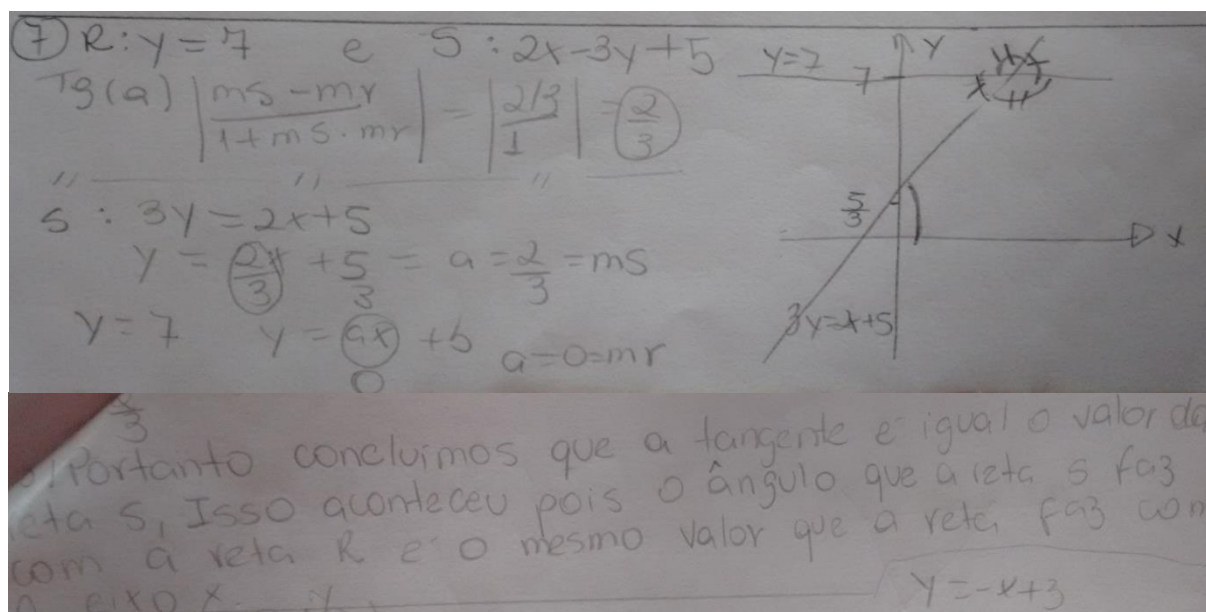 7 R: y = 7 e S: 2x - 3y + 5
Tg(a) |ms - mr / 1 + ms . mr| = |2/3 / 1| = 2/3
S : 3y = 2x + 5
y = 2x/3 + 5/3 = a = 2/3 = ms
y = 7 y = ax + b a = 0 = mr
0
y=7
7
Y
5/3
X
3y=x+5
3
Portanto concluimos que a tangente e igual o valor da
reta S, Isso aconteceu pois o ângulo que a reta s faz
com a reta R e o mesmo valor que a reta faz com
eixo x
Y = -x + 3